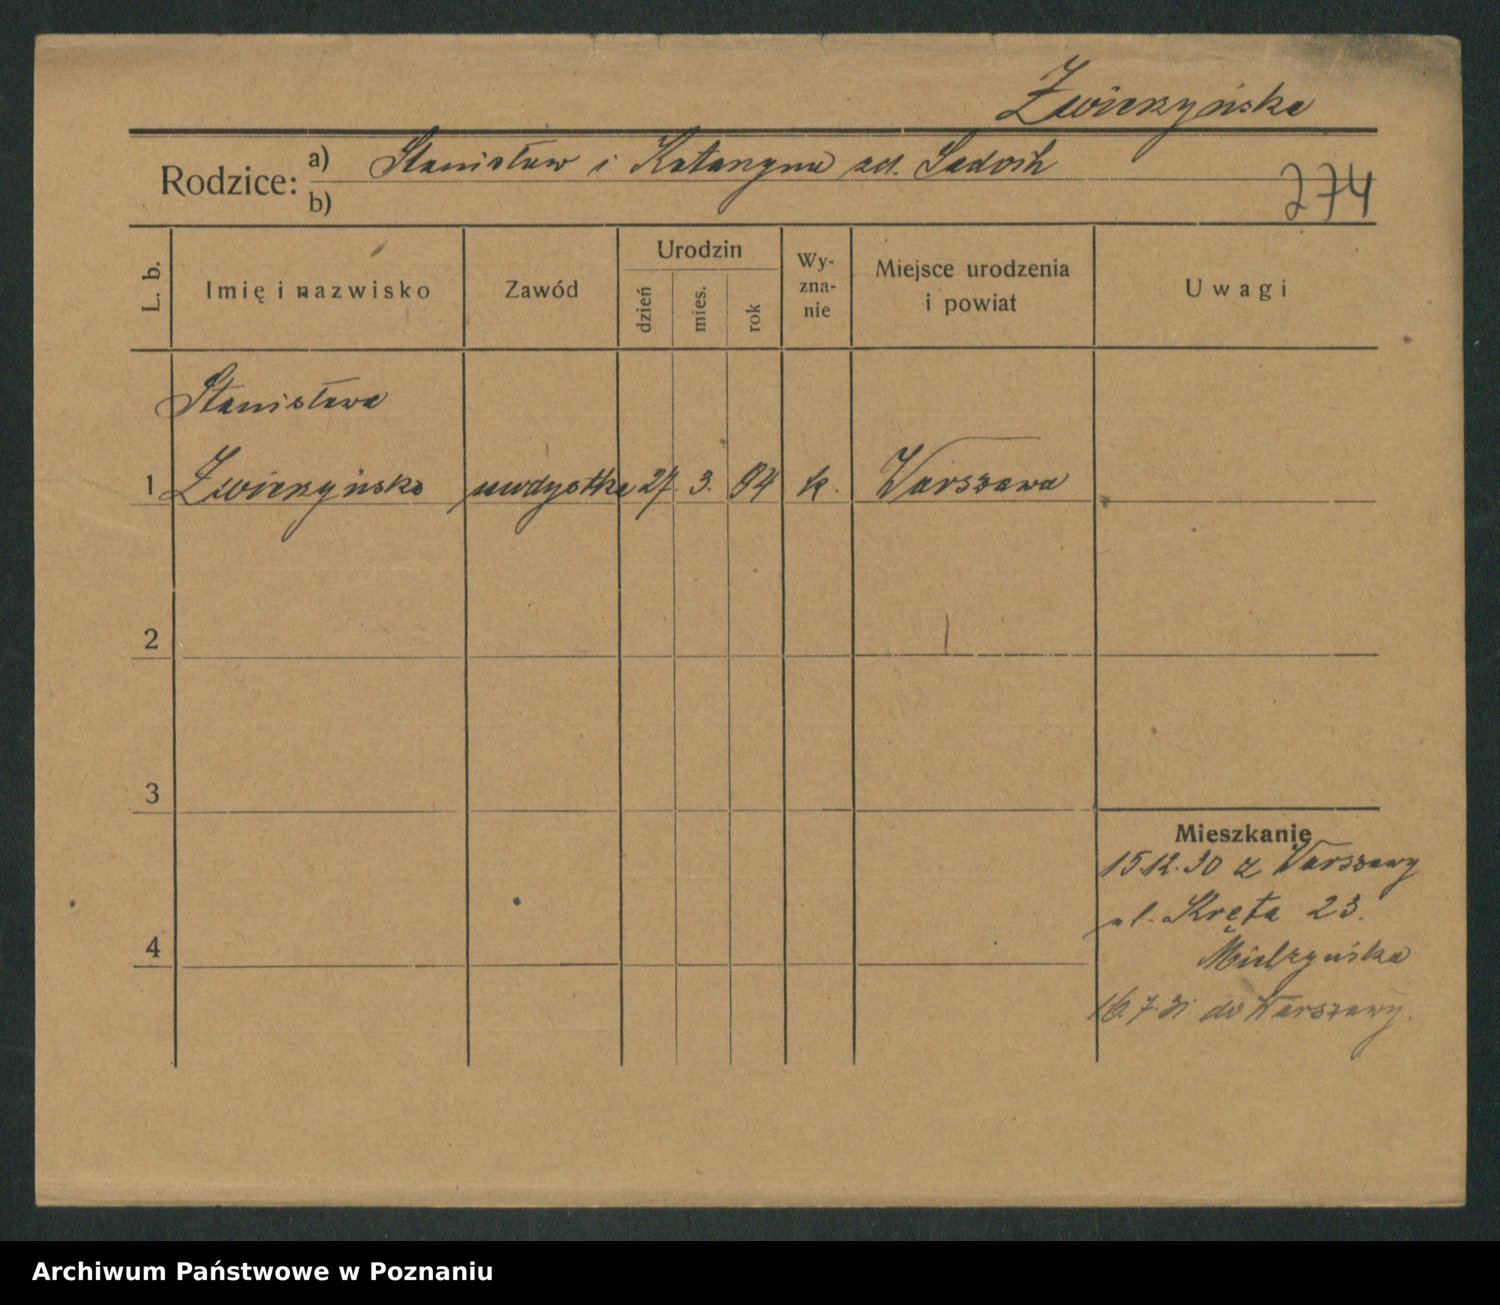 Zwierzyńska
Rodzice: a) Stanisław i Katarzyna zd. Sadoch
b)
274
L. b. Imię i nazwisko Zawód Urodzin dzień mies. rok Wyznanie Miejsce urodzenia i powiat Uwagi
Stanisława
1 Zwierzyńska 27 3. 94 k. Warszawa
2
3
Mieszkanie
15.12.30 z Warszawy
ul. Kręta 23.
4
Mielżyńska
16.7.31 do Warszawy.
Archiwum Państwowe w Poznaniu